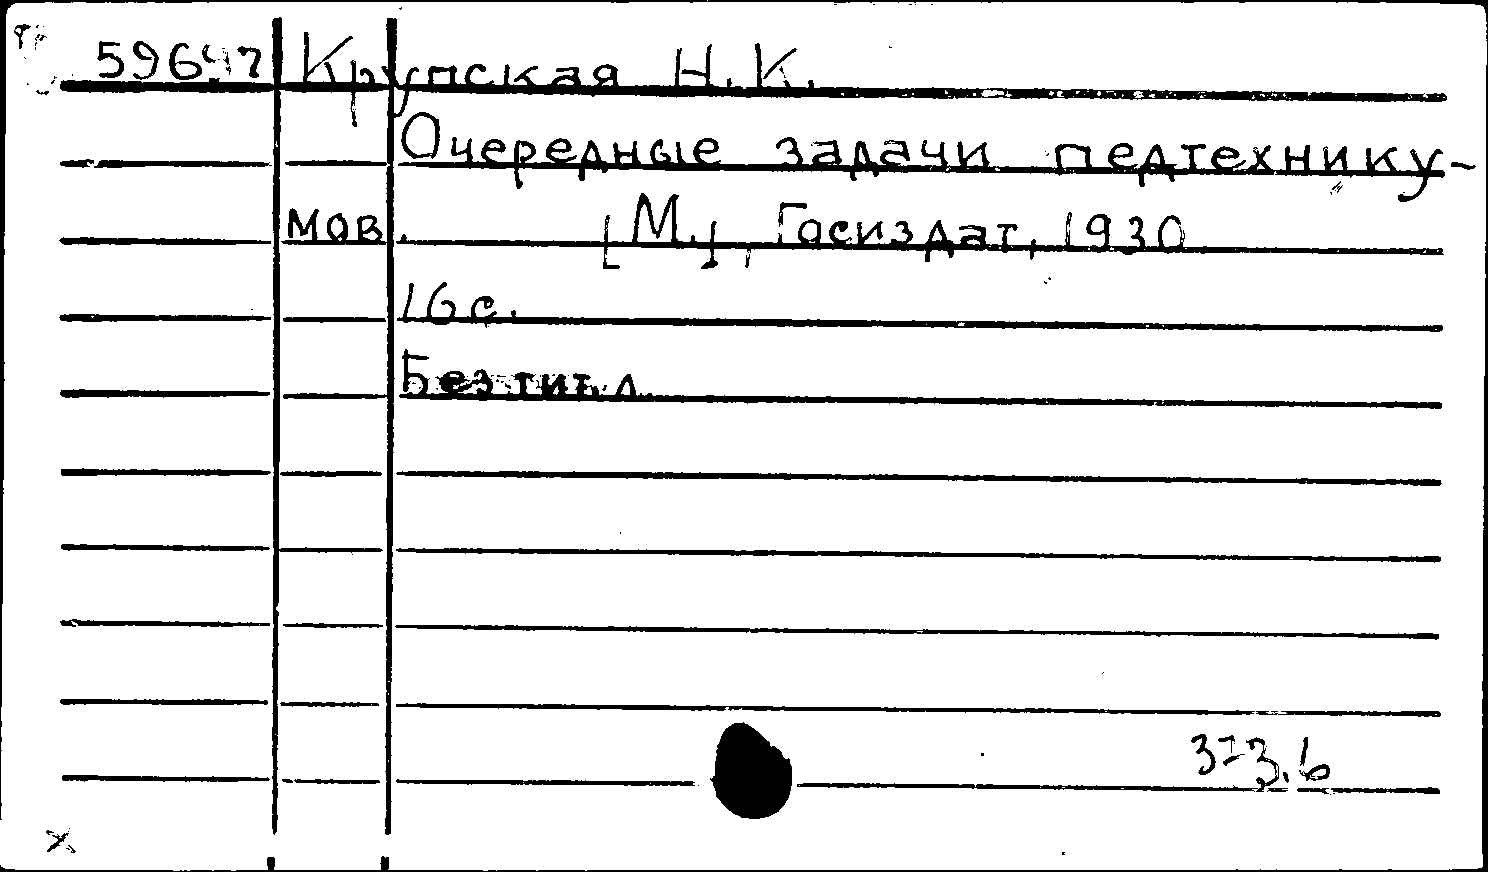 Крупская Н.К.
Очередные задачи педтехнику-
мов. [М.], Госиздат, 1930
16 с.
Без тит. л.